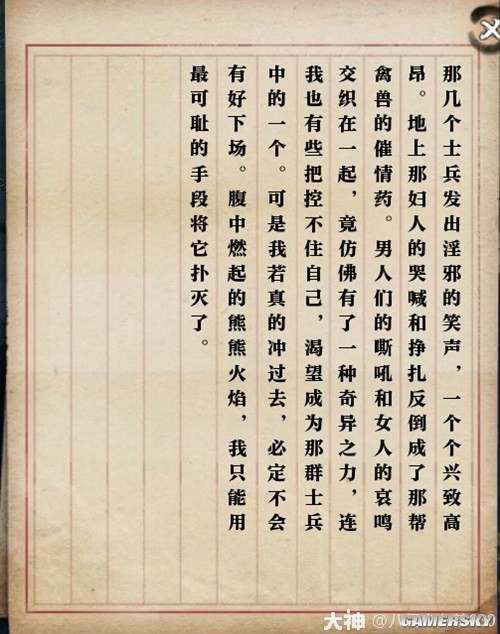 那几个士兵发出淫邪的笑声，一个个兴致高
昂。地上那妇人的哭喊和挣扎反倒成了那帮
禽兽的催情药。男人们的嘶吼和女人的哀鸣
交织在一起，竟仿佛有了一种奇异之力，连
我也有些把控不住自己，渴望成为那群士兵
中的一个。可是我若真的冲过去，必定不会
有好下场。腹中燃起的熊熊火焰，我只能用
最可耻的手段将它扑灭了。
大神
GAMERSKY